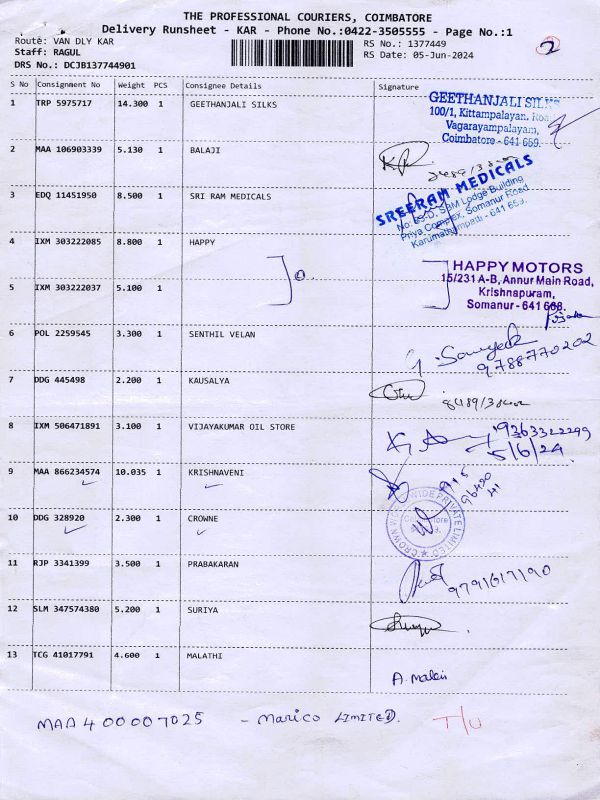 THE PROFESSIONAL COURIERS, COIMBATORE
Delivery Runsheet - KAR - Phone No.:0422-3505555 - Page No.:1
Route: VAN DLY KAR
RS No.: 1377449
2
Staff: RAGUL
RS Date: 05-Jun-2024
DRS No.: DCJB137744901
S No Consignment No Weight PCS Consignee Details Signature
1 TRP 5975717 14.300 1 GEETHANJALI SILKS
GEETHANJALI SILKS
100/1, Kittampalayan. Road
Vagarayampalayam,
Coimbatore - 641 659.
2 MAA 106903339 5.130 1 BALAJI
3 EDQ 11451950 8.500 1 SRI RAM MEDICALS
SREERAM MEDICALS
SBM Lodge Building
Priya Complex, Somanur Road
4 IXM 303222085 8.800 1 HAPPY
HAPPY MOTORS
15/231 A-B, Annur Main Road,
Krishnapuram,
Somanur - 641 668.
5 IXM 303222037 5.100 1
6 POL 2259545 3.300 1 SENTHIL VELAN
9788770202
7 DDG 445498 2.200 1 KAUSALYA
8 IXM 506471891 3.100 1 VIJAYAKUMAR OIL STORE
9363322299
5/6/24
9 MAA 866234574 10.035 1 KRISHNAVENI
10 DDG 328920 2.300 1 CROWNE
11 RJP 3341399 3.500 1 PRABAKARAN
9791617190
12 SLM 347574380 5.200 1 SURIYA
13 TCG 41017791 4.600 1 MALATHI
MAA 400007025 - Marico LIMITED. T/U